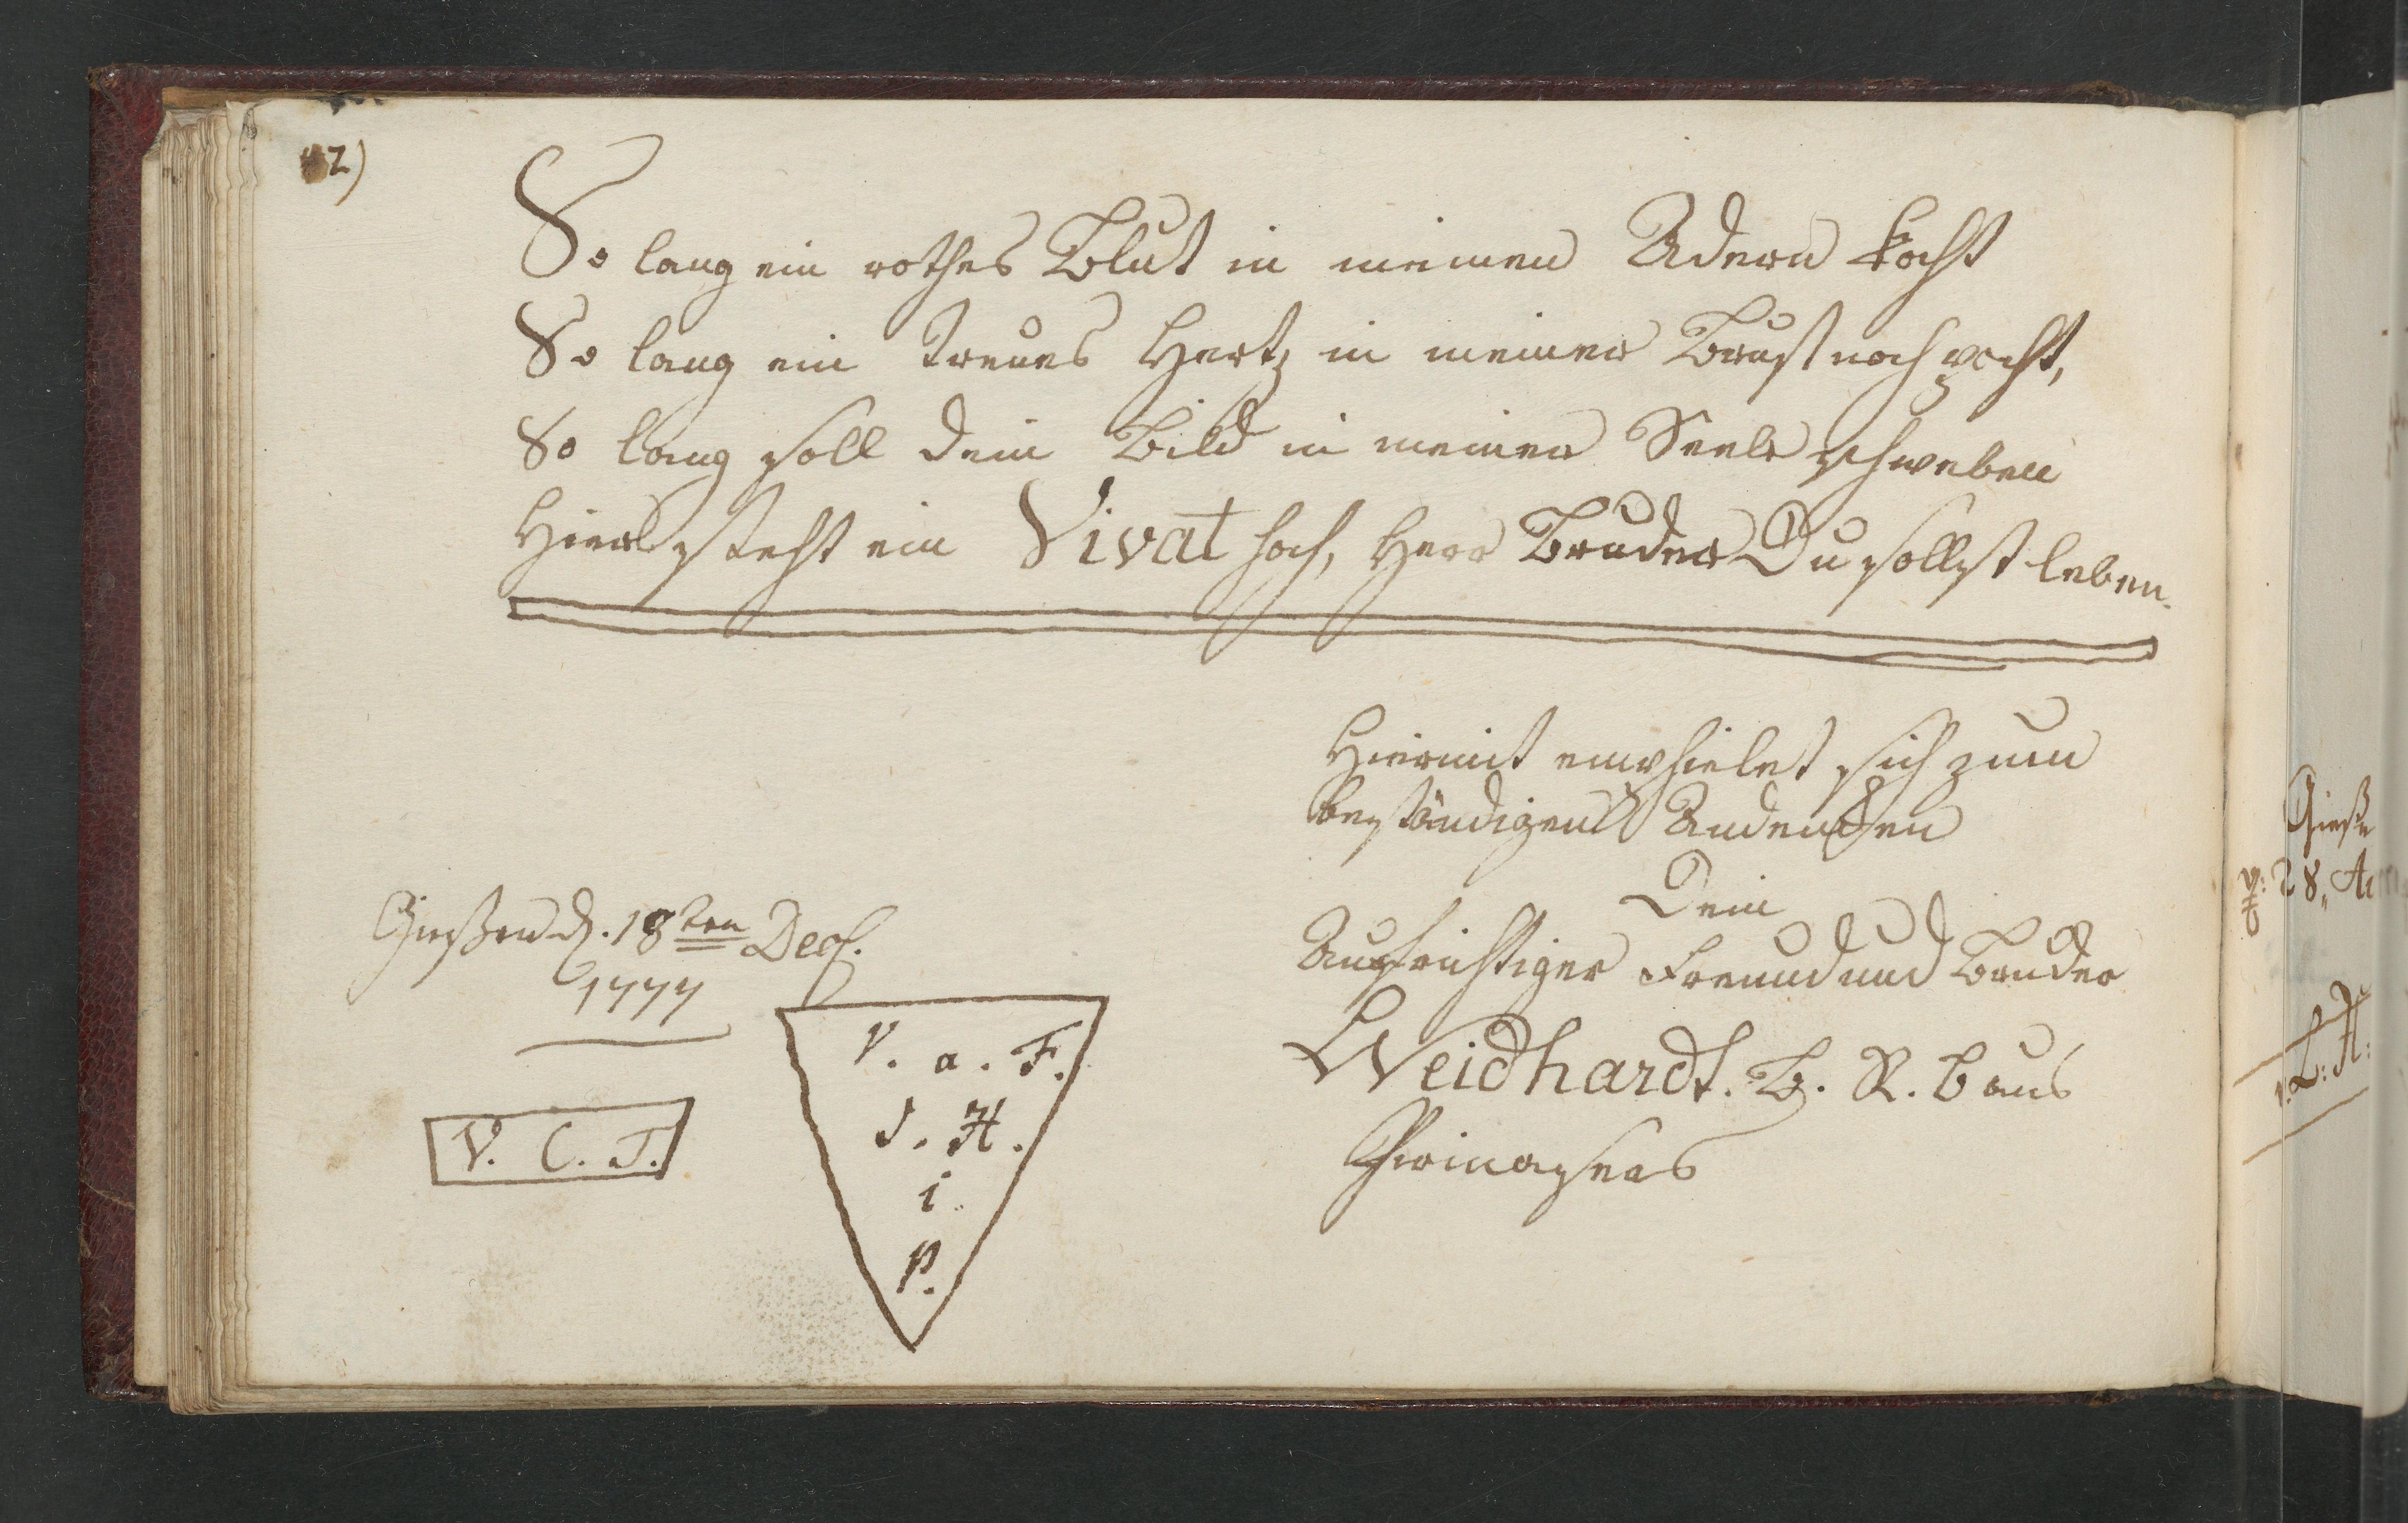 42)
So lang ein rothes Blut in meinen Adern kocht
So lang ein treues Hertz in meiner Brust noch pocht,
So lang soll dein Bild in meiner Seele schweben
Hier steht ein Vivat hoch, Herr Bruder Du sollst leben.
Hiermit empfielet sich zum
beständigen Andenken
Dein
Aufrichtiger Freund und Bruder
Weidhardt. B. R. B aus
Giesen d. 18ten Dec.
1777
V. C. J.
V. a. F.
J. H.
i.
P.
Giese
28. Au